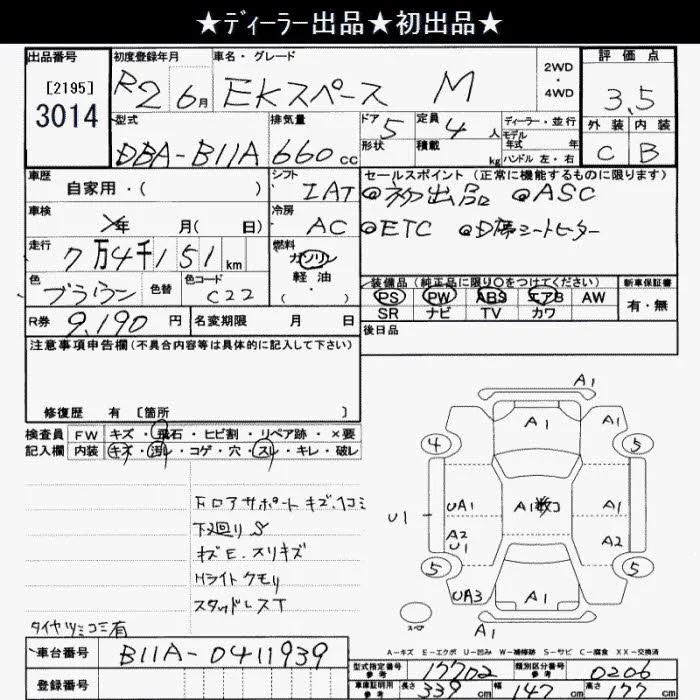 ★ディーラー出品★初出品★
出品番号
[2195]
3014
初度登録年月
R2 6月
車名・グレード
EKスペース M
2WD
・
4WD
評価点
3.5
外装 内装
C B
型式
DBA-B11A
排気量
660cc
ドア
5
形状
定員
4人
積載
kg
ディーラー・並行
モデル
年式 年
ハンドル 左・右
車歴
自家用・( )
シフト
IAT
セールスポイント(正常に機能するものに限ります)
◎初出品 ◎ASC
◎ETC ◎D席シートヒーター
車検
年 月( 日)
冷房
AC
走行
7万4千151km
燃料
ガソリン
軽油
( ・ )
色
ブラウン
色替
色コード
C22
装備品(純正品に限り○をつけてください)
PS PW ABS エアB AW
SR ナビ TV カワ
新車保証書
有・無
R券 9,190円
名変期限 月 日
後日品
注意事項申告欄(不具合内容等は具体的に記入して下さい)
修復歴 有 [箇所 ]
検査員
記入欄
FW キズ・飛石・ヒビ割・リペア跡・×要
内装 キズ・汚レ・コゲ・穴・スレ・キレ・破レ
下回りS
キズE.スリキズ
Hライトクモリ
スタッドレスT
タイヤツミコミ有
A1
A1
A1
4
5
UA1
A1
A1
U1
A2
U1
A2
5
5
UA3
A1
A1
スペア
A-キズ E-エクボ U-凹み W-補修跡 S-サビ C-腐食 XX-交換済
車台番号
B11A-0411939
登録番号
型式指定番号
参考
17702
類別区分番号
参考
0206
車庫証明用
参考
長さ 339cm 幅 147cm 高さ 177cm